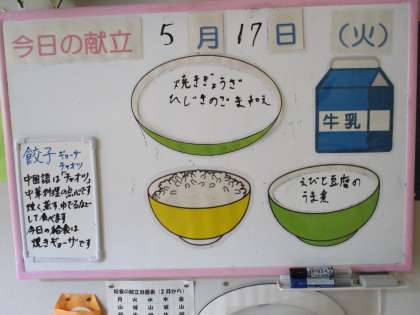 今日の献立 5月17日(火)
焼きぎょうざ
ひじきのごま和え
牛乳
餃子 ギョーザ
チャオツ
中国語は「チャオツ」。
中華料理の点心です
焼く、蒸す、ゆでるなど
して食べます
今日の給食は
焼きギョーザです
えびと豆腐の
うま煮
給食の献立当番表(2月から)
月 火 水 木 金
山 城 山 城 山